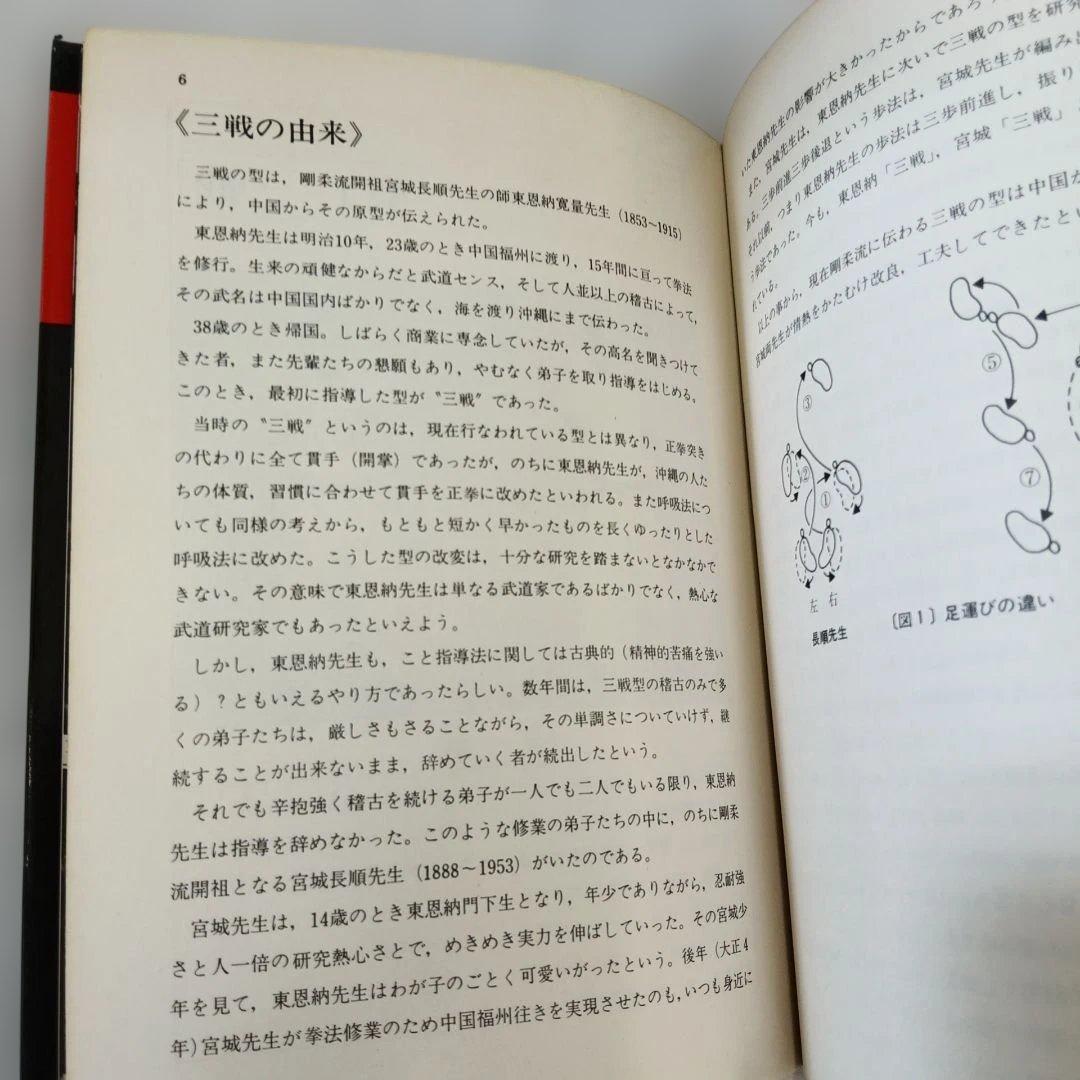 6
《三戦の由来》
三戦の型は，剛柔流開祖宮城長順先生の師東恩納寛量先生（1853～1915）
により，中国からその原型が伝えられた。
東恩納先生は明治10年，23歳のとき中国福州に渡り，15年間に亘って拳法
を修行。生来の頑健なからだと武道センス，そして人並以上の稽古によって，
その武名は中国国内ばかりでなく，海を渡り沖縄にまで伝わった。
38歳のとき帰国。しばらく商業に専念していたが，その高名を聞きつけて
きた者，また先輩たちの懇願もあり，やむなく弟子を取り指導をはじめる。
このとき，最初に指導した型が〝三戦〟であった。
当時の〝三戦〟というのは，現在行なわれている型とは異なり，正拳突き
の代わりに全て貫手（開掌）であったが，のちに東恩納先生が，沖縄の人た
ちの体質，習慣に合わせて貫手を正拳に改めたといわれる。また呼吸法につ
いても同様の考えから，もともと短かく早かったものを長くゆったりとした
呼吸法に改めた。こうした型の改変は，十分な研究を踏まないとなかなかで
きない。その意味で東恩納先生は単なる武道家であるばかりでなく，熱心な
武道研究家でもあったといえよう。
しかし，東恩納先生も，こと指導法に関しては古典的（精神的苦痛を強い
る）？ともいえるやり方であったらしい。数年間は，三戦型の稽古のみで多
くの弟子たちは，厳しさもさることながら，その単調さについていけず，継
続することが出来ないまま，辞めていく者が続出したという。
それでも辛抱強く稽古を続ける弟子が一人でも二人でもいる限り，東恩納
先生は指導を辞めなかった。このような修業の弟子たちの中に，のちに剛柔
流開祖となる宮城長順先生（1888～1953）がいたのである。
宮城先生は，14歳のとき東恩納門下生となり，年少でありながら，忍耐強
さと人一倍の研究熱心さとで，めきめき実力を伸ばしていった。その宮城少
年を見て，東恩納先生はわが子のごとく可愛いがったという。後年（大正4
年）宮城先生が拳法修業のため中国福州往きを実現させたのも，いつも身近に
いた東恩納先生の影響が大きかったからであろ
また，宮城先生は，東恩納先生に次いで三戦の型を研究
ある。三歩前進三歩後退という歩法は，宮城先生が編み出
それ以前，つまり東恩納先生の歩法は三歩前進し，振り
う歩法であった。今も，東恩納「三戦」，宮城「三戦」
れている。
以上の事から，現在剛柔流に伝わる三戦の型は中国か
宮城両先生が情熱をかたむけ改良，工夫してできたとい
③
②
①
⑤
⑦
左 右
長順先生
〔図1〕足運びの違い